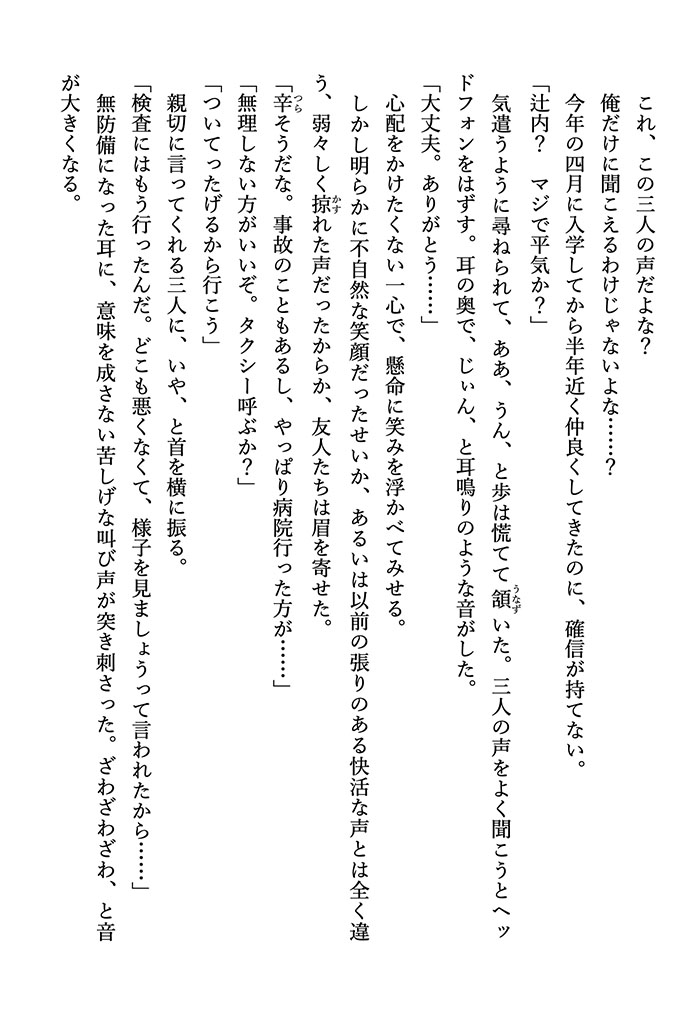 これ、この三人の声だよな？
俺だけに聞こえるわけじゃないよな……？
今年の四月に入学してから半年近く仲良くしてきたのに、確信が持てない。
「辻内？　マジで平気か？」
気遣うように尋ねられて、ああ、うん、と歩は慌てて頷いた。三人の声をよく聞こうとヘッ
ドフォンをはずす。耳の奥で、じぃん、と耳鳴りのような音がした。
「大丈夫。ありがとう……」
心配をかけたくない一心で、懸命に笑みを浮かべてみせる。
しかし明らかに不自然な笑顔だったせいか、あるいは以前の張りのある快活な声とは全く違
う、弱々しく掠れた声だったからか、友人たちは眉を寄せた。
「辛そうだな。事故のこともあるし、やっぱり病院行った方が……」
「無理しない方がいいぞ。タクシー呼ぶか？」
「ついてったげるから行こう」
親切に言ってくれる三人に、いや、と首を横に振る。
「検査にはもう行ったんだ。どこも悪くなくて、様子を見ましょうって言われたから……」
無防備になった耳に、意味を成さない苦しげな叫び声が突き刺さった。ざわざわざわ、と音
が大きくなる。
うなず
かす
つら